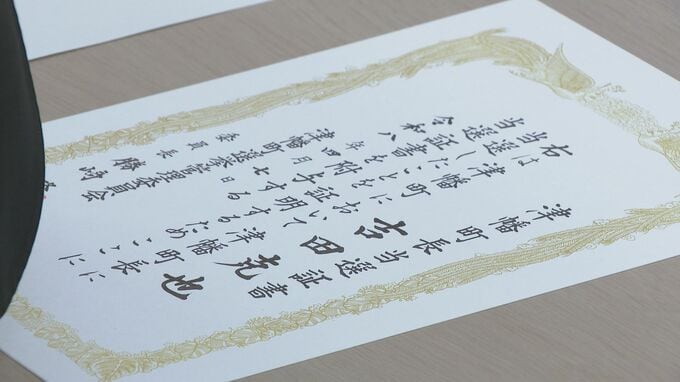 津幡町長当選証書
吉田克也
右は津幡町において津幡町長に
当選したことを証明するためここに
当選証書を附与する
令和八年四月七日
津幡町選挙管理委員会
委員長 勝崎